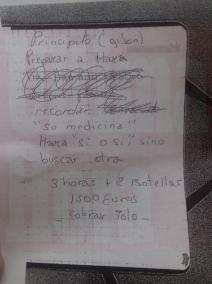 Principito (gibon)
Preparar a Hara
recordar
"su medicina"
Hara "si o si", sino
buscar otra
3 horas + 2 Botellas
1500 Euros
- Cobrar Yolo -